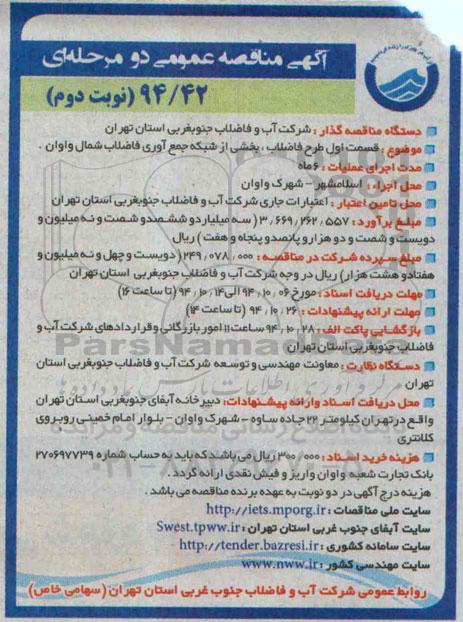 آگهی مناقصه عمومی دو مرحله‌ای
۹۴/۴۲ (نوبت دوم)
دستگاه مناقصه گذار : شرکت آب و فاضلاب جنوبغربی استان تهران
موضوع : قسمت اول طرح فاضلاب ، بخشی از شبکه جمع آوری فاضلاب شمال واوان .
مدت اجرای عملیات : ۶ ماه
محل اجرا : اسلامشهر - شهرک واوان
محل تامین اعتبار : اعتبارات جاری شرکت آب و فاضلاب جنوبغربی استان تهران
مبلغ برآورد : ۳٫۶۶۹٫۲۶۲٫۵۵۷ ( سه میلیارد و ششصد و شصت و نه میلیون و
دویست و شصت و دو هزار و پانصد و پنجاه و هفت ) ریال
مبلغ سپرده شرکت در مناقصه : ۲۴۹٫۰۷۸٫۰۰۰ ( دویست و چهل و نه میلیون و
هفتاد و هشت هزار) ریال در وجه شرکت آب و فاضلاب جنوبغربی استان تهران
مهلت دریافت اسناد : مورخ ۹۴٫۱۰٫۰۶ الی ۹۴٫۱۰٫۱۴ (تا ساعت ۱۶)
مهلت ارائه پیشنهادات : ۹۴٫۱۰٫۲۶ (تا ساعت ۱۴)
بازگشایی پاکت الف : ۹۴٫۱۰٫۲۸ ساعت ۱۱ امور بازرگانی و قراردادهای شرکت آب و
فاضلاب جنوبغربی استان تهران
دستگاه نظارت : معاونت مهندسی و توسعه شرکت آب و فاضلاب جنوبغربی استان
تهران
محل دریافت اسناد و ارائه پیشنهادات : دبیرخانه آبفای جنوبغربی استان تهران
واقع در تهران کیلومتر ۲۲ جاده ساوه - شهرک واوان - بلوار امام خمینی روبروی
کلانتری
هزینه خرید اسناد : ۳۰۰٫۰۰۰ ریال می باشد که باید به حساب شماره ۲۷۰۶۹۷۷۳۹
بانک تجارت شعبه واوان واریز و فیش نقدی ارائه گردد .
هزینه درج آگهی در دو نوبت به عهده برنده مناقصه می باشد .
سایت ملی مناقصات : http://iets.mporg.ir
سایت آبفای جنوب غربی استان تهران : Swest.tpww.ir
سایت سامانه کشوری : http://tender.bazresi.ir
سایت مهندسی کشور : www.nww.ir
روابط عمومی شرکت آب و فاضلاب جنوب غربی استان تهران (سهامی خاص)